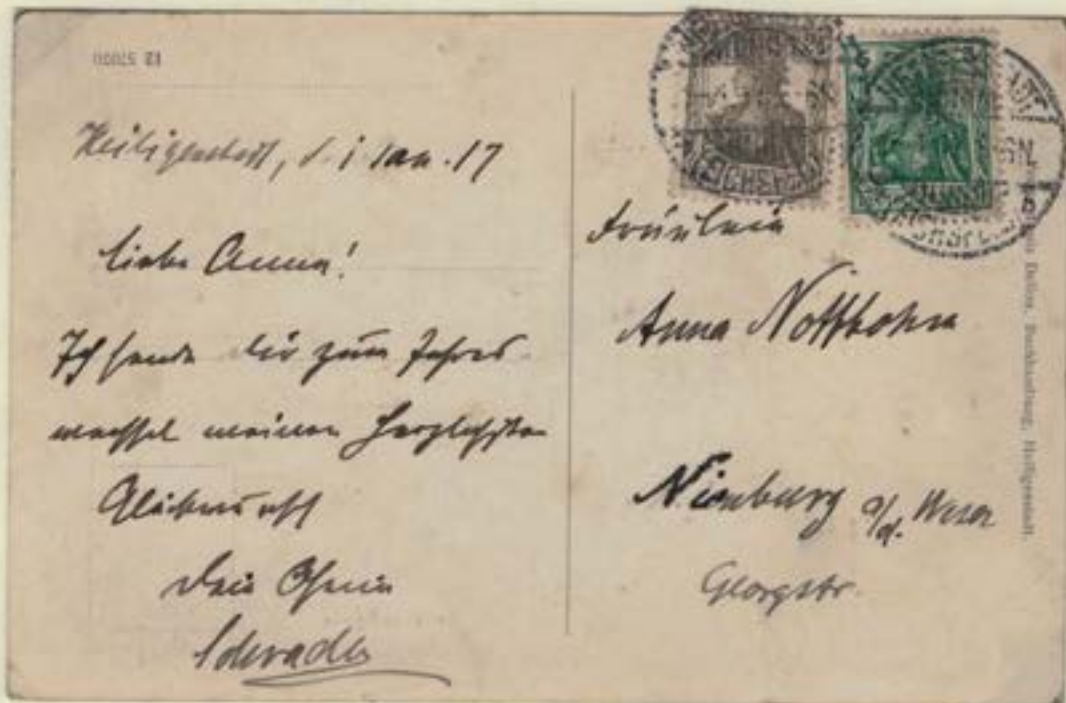 Heiligenstadt, d. 1 Jan. 17
Liebe Anna!
Ich sende dir zum Jahres
wechsel meinen herzlichsten
Glückwunsch
Dein Oheim
Fräulein
Anna Nottbohm
Nienburg a/d. Weser
Georgstr.
Buchhandlung, Heiligenstadt.